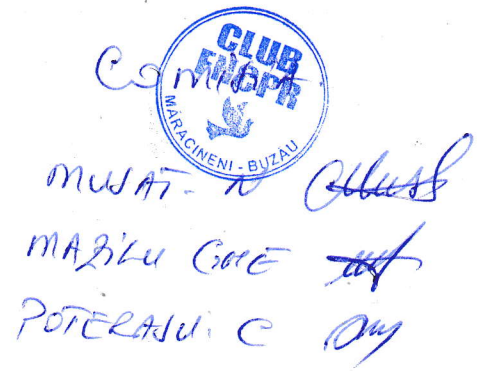 CLUB
FNCPR
MĂRĂCINENI - BUZĂU
Comisia
MUSAT - N
MAZILU GHE
POTERASU C